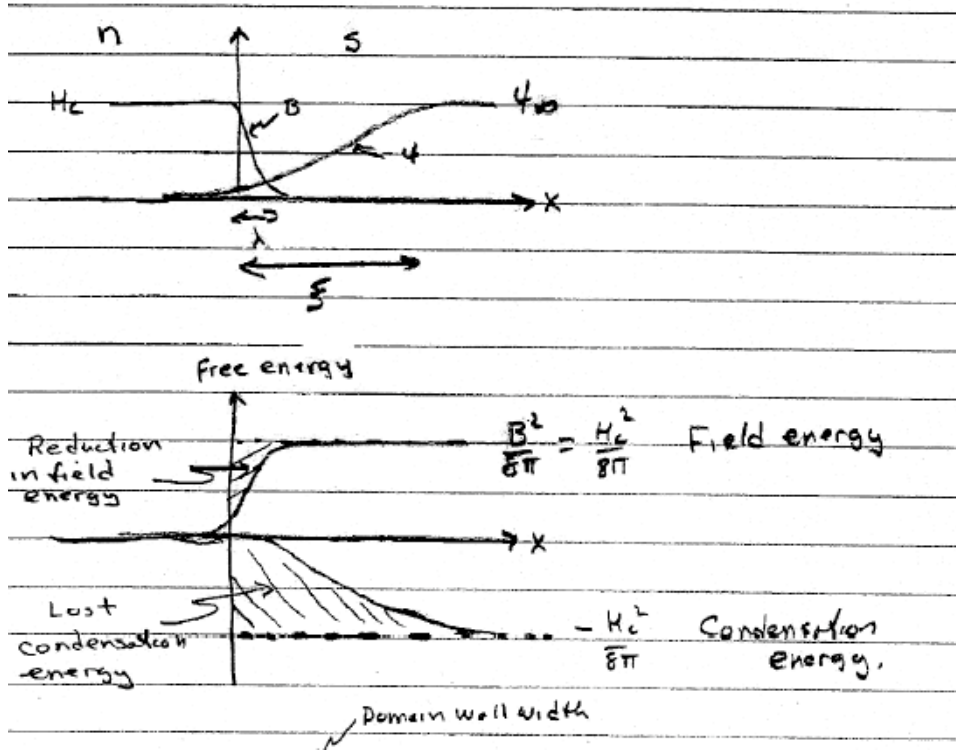 n s
H_c B ψ_∞
ψ
x
λ
ξ
Free energy
Reduction in field energy
B²/8π = H_c²/8π Field energy
x
Lost condensation energy
- H_c²/8π Condensation energy.
Domain wall width